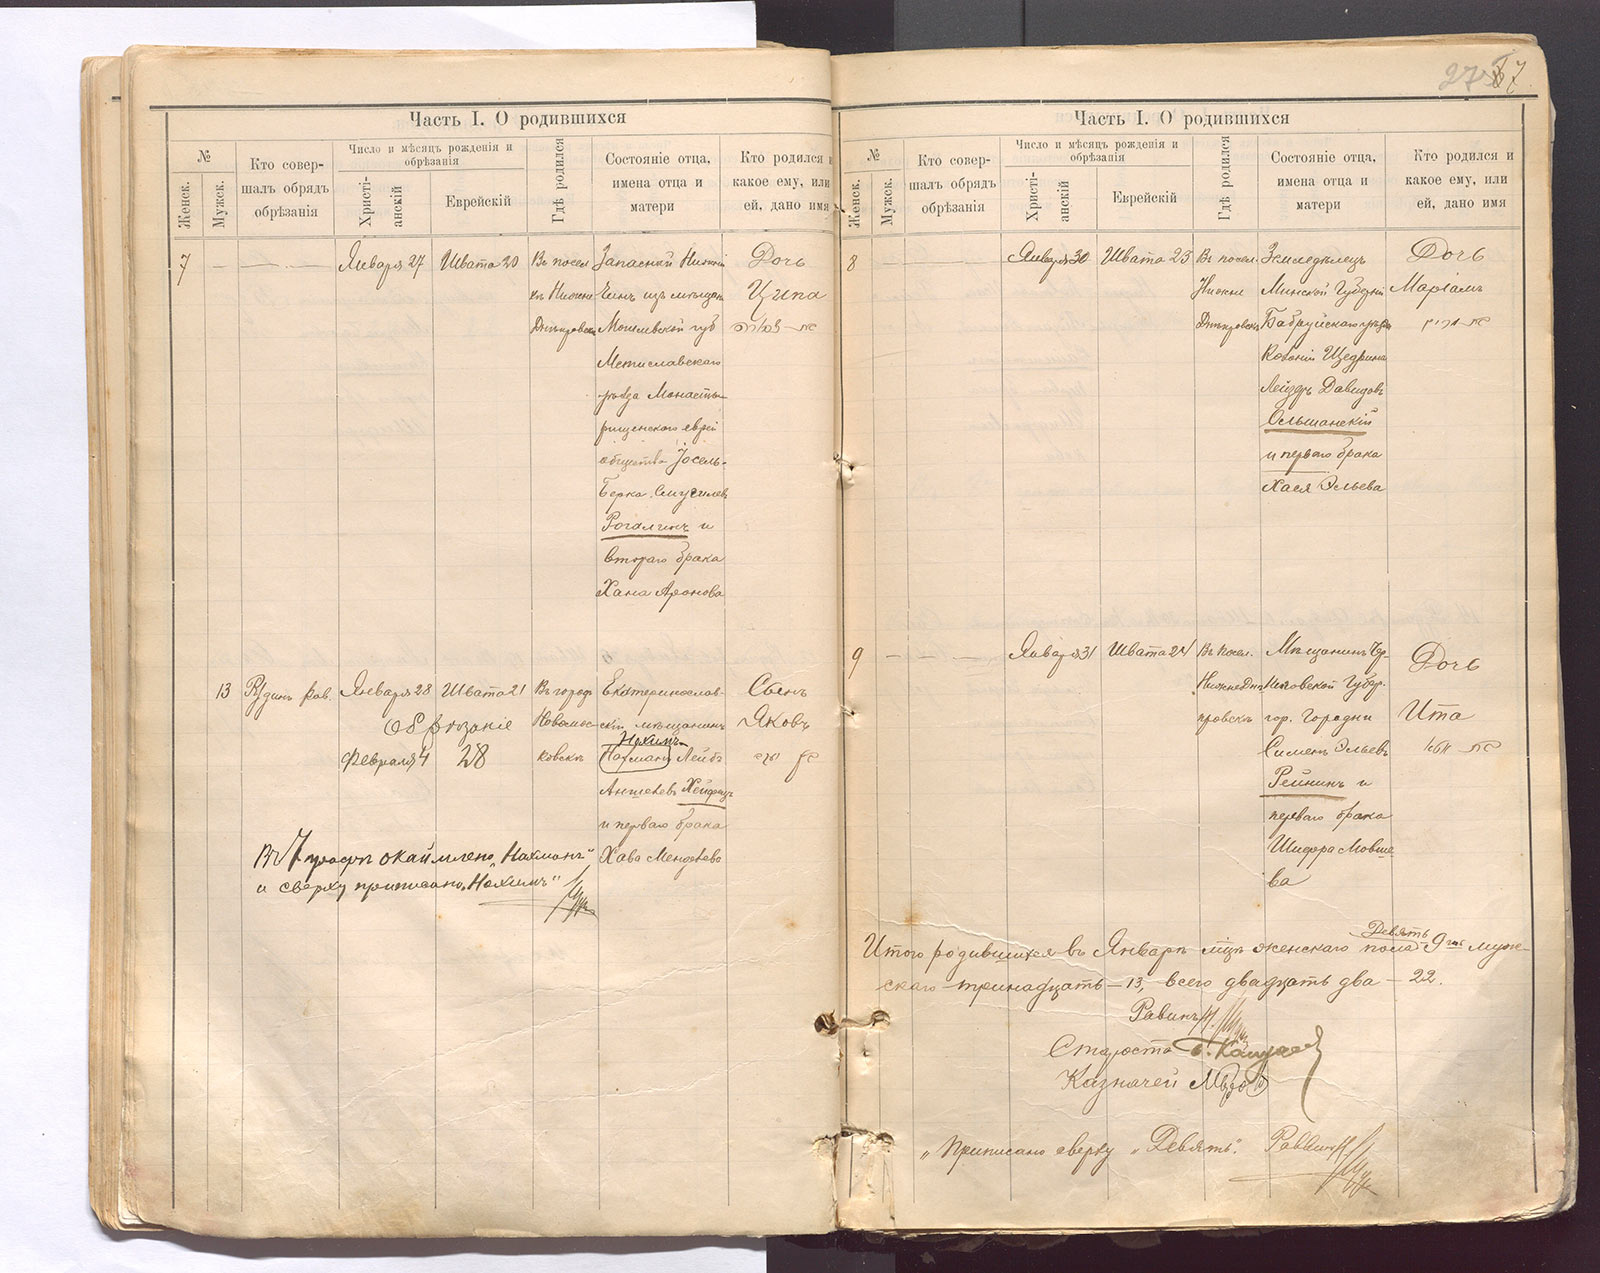 27
37
Часть I. О родившихся
№
Женск.
Мужск.
Кто совер-
шалъ обрядъ
обрѣзанія
Число и мѣсяцъ рожденія и
обрѣзанія
Христі-
анскій
Еврейскій
Гдѣ родился
Состояніе отца,
имена отца и
матери
Кто родился и
какое ему, или
ей, дано имя
7
Января 27
Швата 20
Въ посел
къ Нижне
Днѣпровскъ
Запасный Нижній
Чинъ изъ мѣщанъ
Могилевской губ
Мстиславскаго
уѣзда Монасты-
рщенскаго еврей
общества Іосель-
Берка
Рогалинъ и
втораго брака
Хана Аронова
Дочь
Ципа
13
Января 28
Швата 21
Обрѣзаніе
Февраля 4
28
Въ городѣ
Новомос-
ковскѣ
Екатеринослав-
скій мѣщанинъ
Нохимъ
Нахманъ Лейбъ
Аншелевъ Хейфецъ
и перваго брака
Хава Менделева
Сынъ
Яковъ
Въ 7 графѣ окаймлено „Нахманъ"
и сверху приписано „Нохимъ"
Часть I. О родившихся
№
Женск.
Мужск.
Кто совер-
шалъ обрядъ
обрѣзанія
Число и мѣсяцъ рожденія и
обрѣзанія
Христі-
анскій
Еврейскій
Гдѣ родился
Состояніе отца,
имена отца и
матери
Кто родился и
какое ему, или
ей, дано имя
8
Января 30
Швата 23
Въ посел.
Нижне
Днѣпровскъ
Земледѣлецъ
Минской Губерніи
Бабруйскаго уѣзда
Колоніи Щедрина
Лейзеръ Давидовъ
Ольшанскій
и перваго брака
Хася Эльева
Дочь
Маріамъ
9
Января 31
Швата 24
Въ посел.
Нижнеднѣ
провскъ
Мѣщанинъ Чер-
ниговской Губер.
гор. Городни
Сименъ Эльевъ
Рейнинъ и
перваго брака
Шифра Мовше
ва
Дочь
Ита
Девять
Итого родившихся въ Январѣ м-цѣ женскаго пола 9 муж-
скаго тринадцать - 13, всего двадцать два - 22.
Равинъ
Староста
Казначей
„Приписано сверху „Девять". Раввинъ